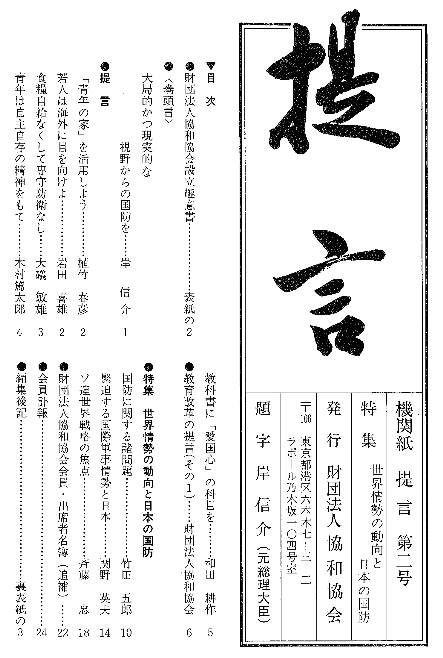 提言
機関紙 提言 第二号
特集 世界情勢の動向と
日本の国防
発行 財団法人協和協会
〒106 東京都港区六本木七-三-二
ラポール乃木坂一〇四号室
題字 岸信介(元総理大臣)
▼目次
●財団法人協和協会設立趣意書………表紙の2
●〈巻頭言〉
大局的かつ現実的な
視野からの国防を……岸 信介 1
●提言
「青年の家」を活用しよう………植竹 春彦 2
若人は海外に目を向けよ………岩田 喜雄 2
食糧自給なくして専守防衛なし……大磯 敏雄 3
青年は自主自存の精神をもて………木村篤太郎 4
教科書に「愛国心」の科目を……和田 耕作 5
●教育改革の提言(その1)……財団法人協和協会 6
●特集 世界情勢の動向と日本の国防
国防に関する諸問題………竹田 五郎 10
緊迫する国際軍事情勢と日本……関野 英夫 14
ソ連世界戦略の焦点………斉藤 忠 18
●財団法人協和協会会員・出席者名簿(追補)……22
●会員訃報………24
●編集後記………裏表紙の3